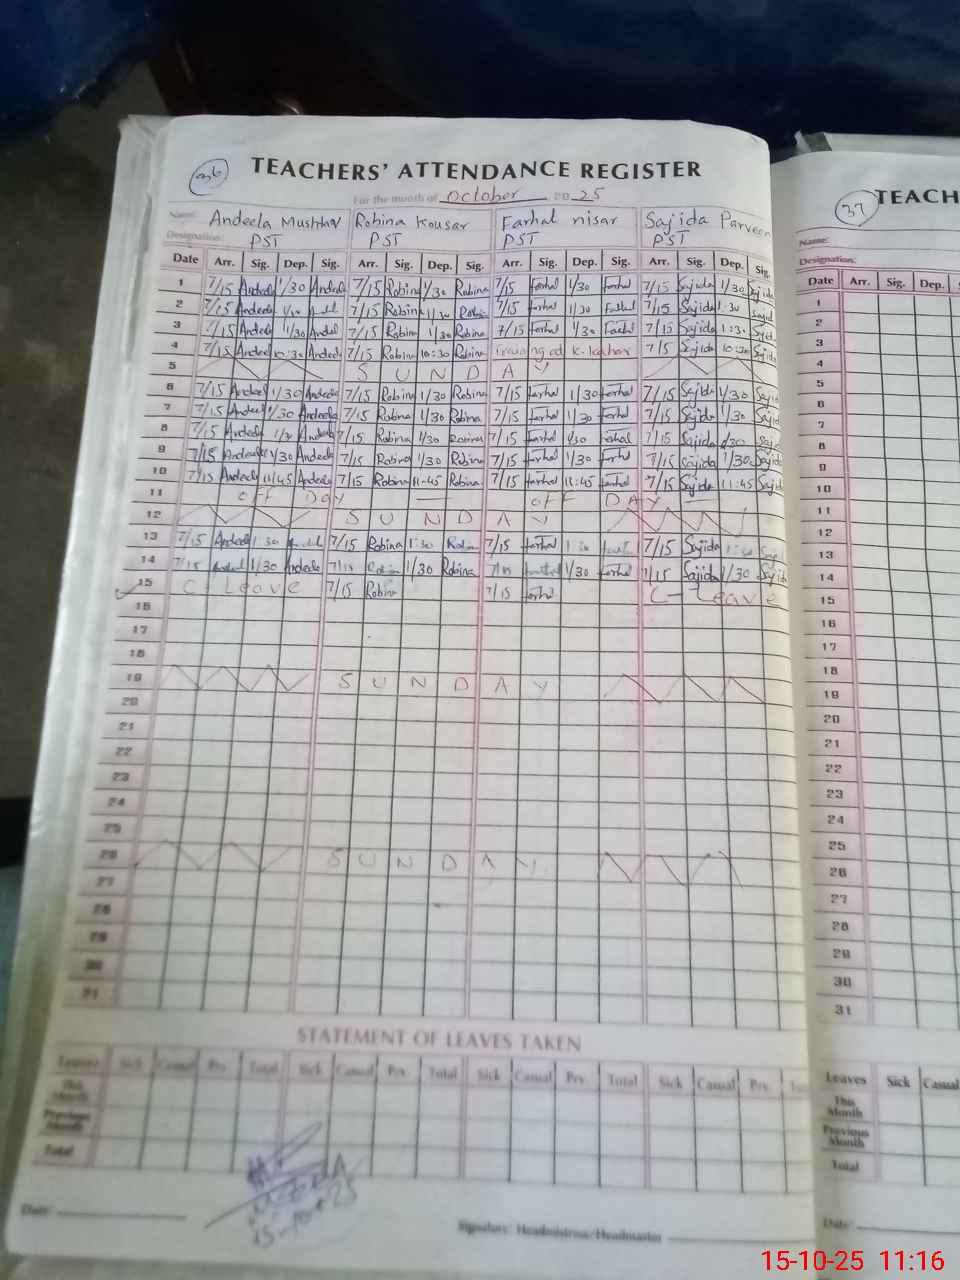 036
TEACHERS' ATTENDANCE REGISTER
For the month of October 20 25
Name: Andeela Mushtaq Robina Kousar Farhal nisar Sajida Parveen
Designation: PST PST PST PST
Date Arr. Sig. Dep. Sig. Arr. Sig. Dep. Sig. Arr. Sig. Dep. Sig. Arr. Sig. Dep. Sig.
1 7/15 Andeela 1/30 Andeela 7/15 Robina 1/30 Robina 7/15 Farhal 1/30 Farhal 7/15 Sajida 1/30 Sajida
2 7/15 Andeela 1/30 7/15 Robina 1/30 Robina 7/15 Farhal 1/30 Farhal 7/15 Sajida 1:30 Sajid
3 7/15 Andeela 1/30 Andeel 7/15 Robina 1/30 Robina 7/15 Farhal 1/30 Farhal 7/15 Sajida 1:30 Sajida
4 7/15 Andeela 10:30 Andeela 7/15 Robina 10:30 Robina training at 7/15 Sajida 10:30 Sajida
5 S U N D A Y
6 7/15 Andeela 1/30 Andeela 7/15 Robina 1/30 Robina 7/15 Farhal 1/30 Farhal 7/15 Sajida 1/30 Sajida
7 7/15 Andeela 1/30 Andeela 7/15 Robina 1/30 Robina 7/15 Farhal 1/30 Farhal 7/15 Sajida 1/30 Sajida
8 7/15 Andeela 1/30 Andeela 7/15 Robina 1/30 Robina 7/15 Farhal 1/30 Farhal 7/15 Sajida 1/30 Sajida
9 7/15 Andeela 1/30 Andeela 7/15 Robina 1/30 Robina 7/15 Farhal 1/30 Farhal 7/15 Sajida 1/30 Sajida
10 7/15 Andeela 11/45 Andeela 7/15 Robina 11:45 Robina 7/15 Farhal 11:45 Farhal 7/15 Sajida 11:45 Sajida
11 OFF DAY — OFF DAY —
12 S U N D A Y
13 7/15 Andeela 1:30 7/15 Robina 1:30 Robina 7/15 Farhal 7/15 Sajida 1:30 Sajida
14 7/15 Andeela 1/30 Andeela 7/15 Robina 1/30 Robina 7/15 Farhal 1/30 Farhal 7/15 Sajida 1/30 Sajida
15 C-Leave 7/15 Robina 7/15 Farhal C-Leave
16
17
18
19 S U N D A Y
20
21
22
23
24
25
26 S U N D A Y
27
28
29
30
31
STATEMENT OF LEAVES TAKEN
Leaves Sick Casual Prv. Total Sick Casual Prv. Total Sick Casual Prv. Total Sick Casual Prv.
This Month
Previous Month
Total
15-10-25
Date:
Signature: Headmistress/Headmaster
37
TEACH
Name:
Designation:
Date Arr. Sig. Dep.
1
2
3
4
5
6
7
8
9
10
11
12
13
14
15
16
17
18
19
20
21
22
23
24
25
26
27
28
29
30
31
Leaves Sick Casual
This Month
Previous Month
Total
Date:
15-10-25 11:16